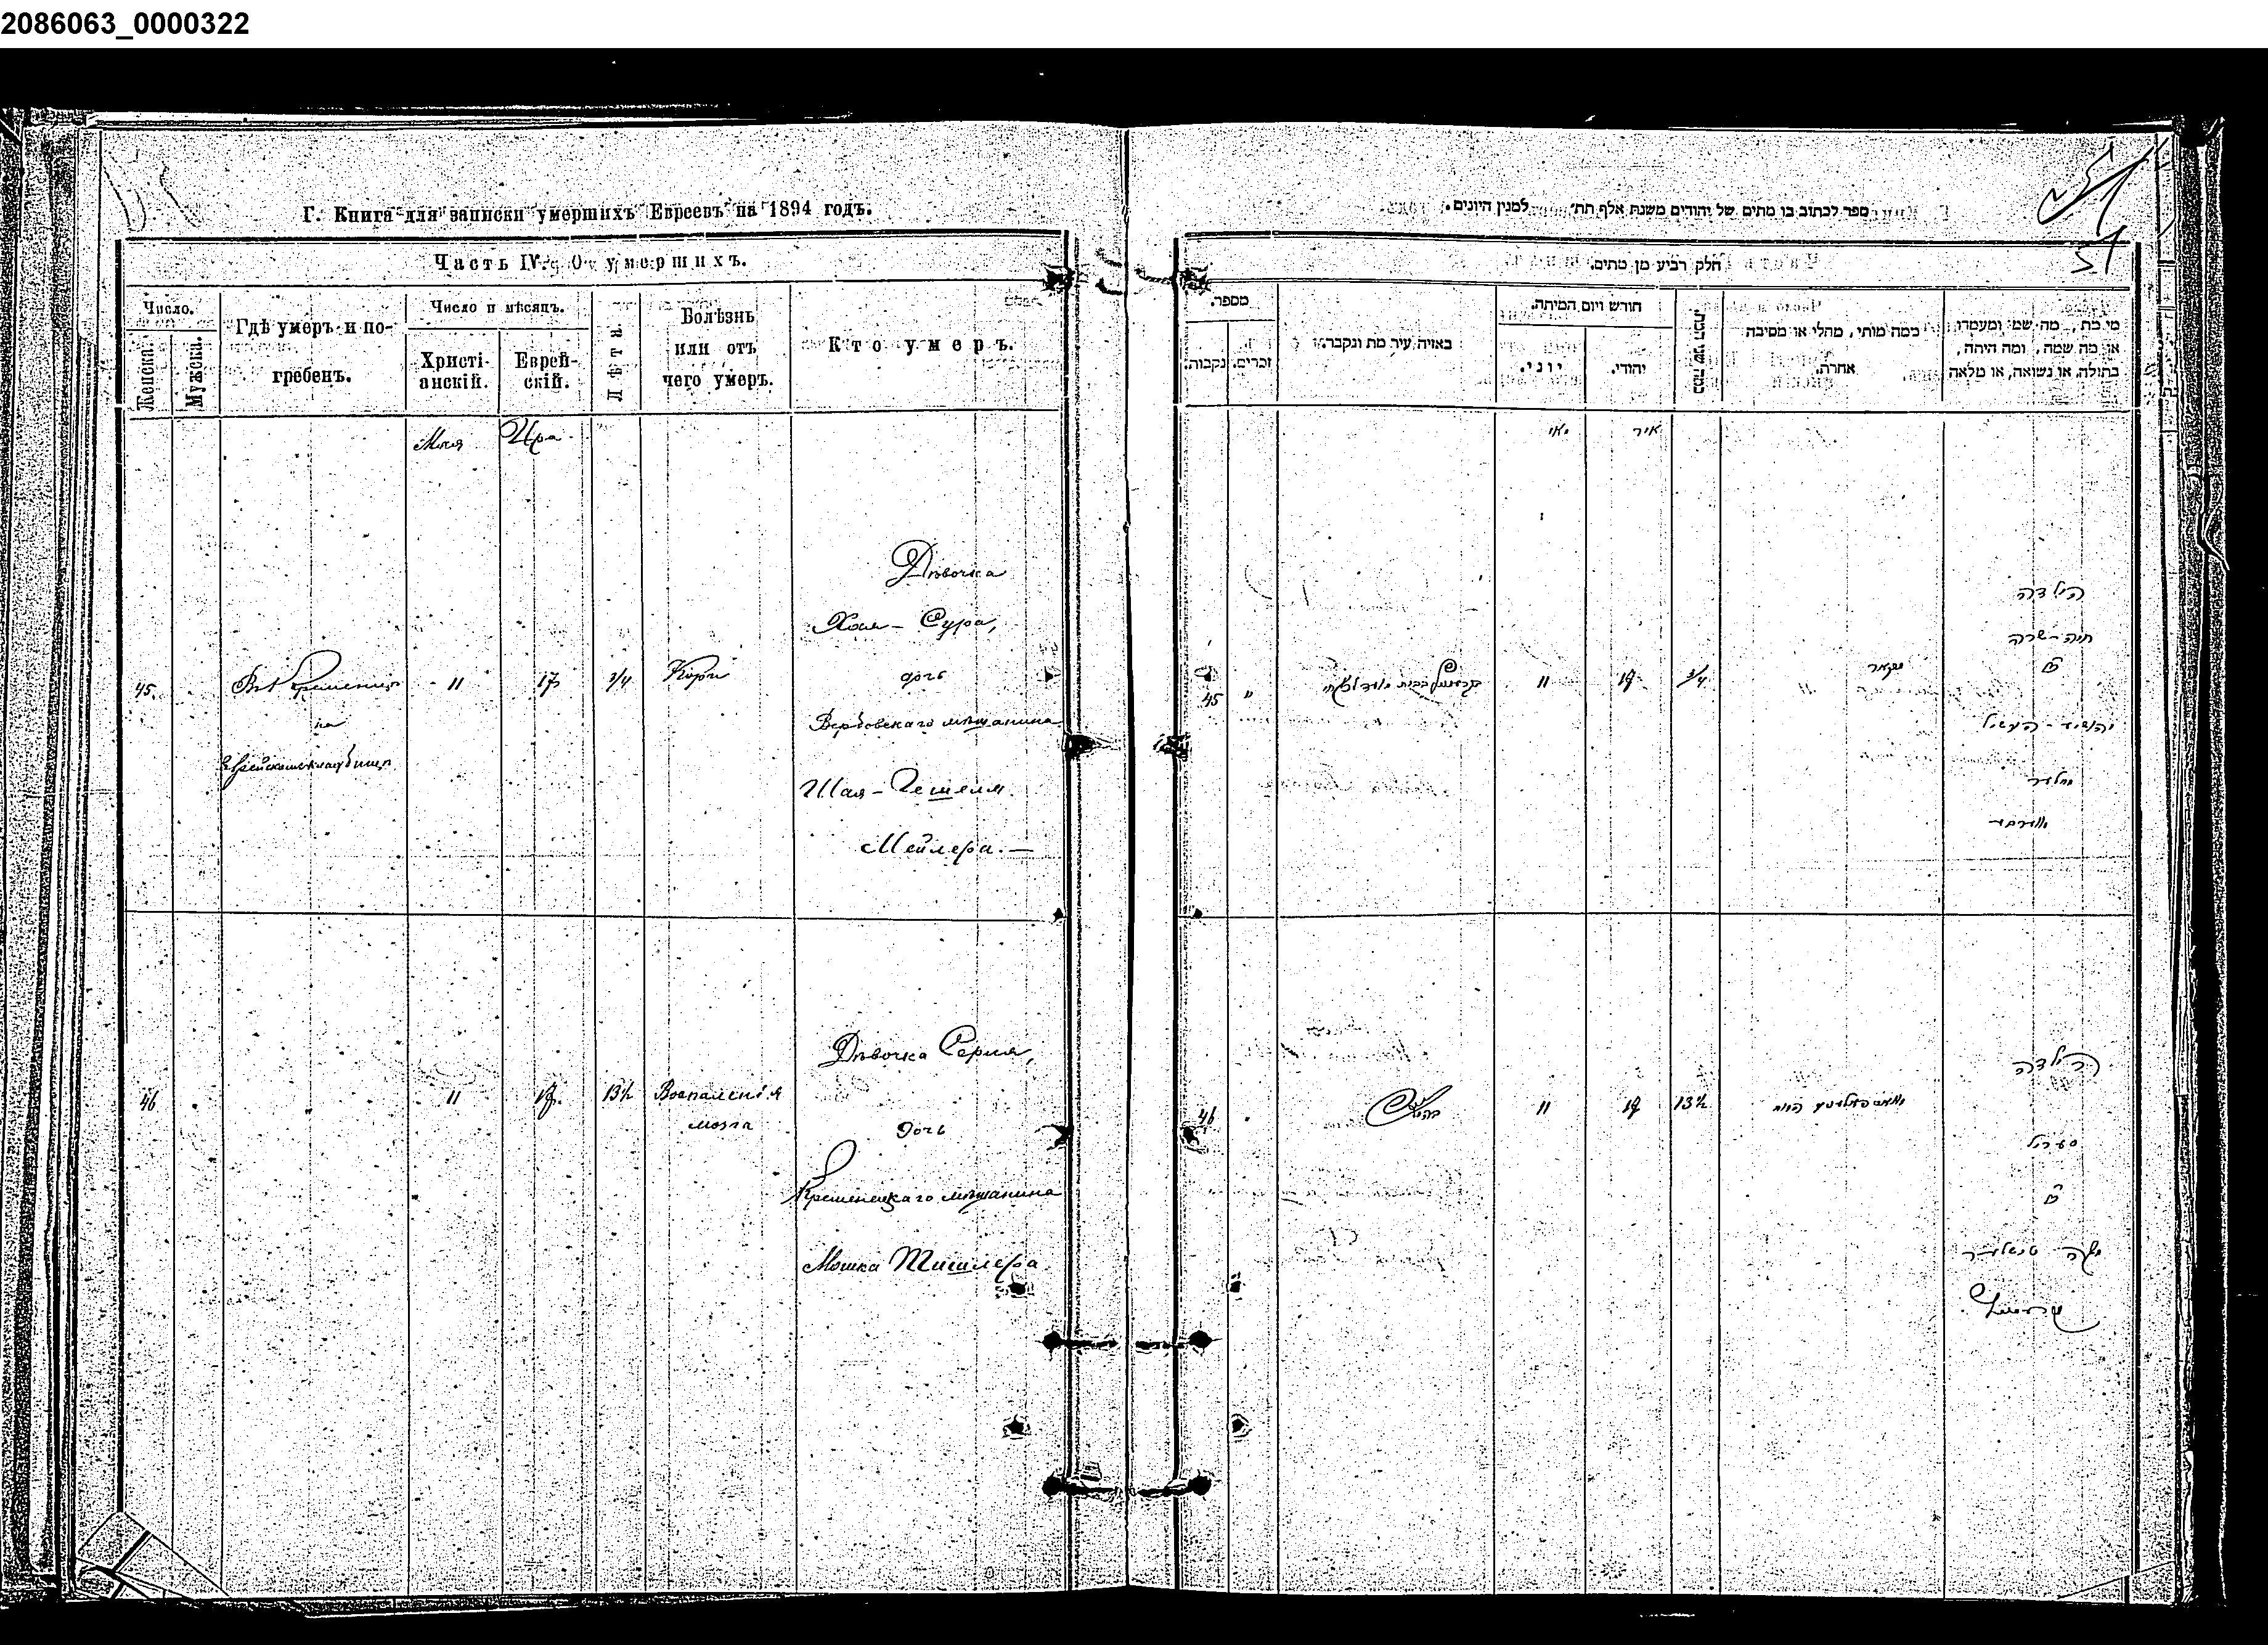 2086063_0000322
Г. Книга для записки умершихъ Евреевъ на 1894 годъ.
Часть IV. О умершихъ.
Число.
Женска.
Мужска.
Гдѣ умеръ и по-
гребенъ.
Число и мѣсяцъ.
Христі-
анскій.
Еврей-
скій.
Лѣта.
Болѣзнь
или отъ
чего умеръ.
Кто умеръ.
Мая
Ира
45
Въ Кременцѣ
на
Еврейскомъ кладбищѣ
11
17
3/4
Кори
Дѣвочка
Хая - Сура,
дочь
Вербовскаго мѣщанина
Шая - Гешеля
Мейлера. —
46
"
11
17
13½
Воспаленія
мозга
Дѣвочка Серля,
дочь
Кременецкаго мѣщанина
Мошка Тишлера
ספר לכתוב בו מתים של יהודים משנת אלף תת״ למנין היונים.
51
51
חלק רביע מן מתים.
מספר.
נקבות.
זכרים.
באיזה עיר מת ונקבר.
חודש ויום המיתה.
יוני.
יהודי.
כמה שני המת.
במה מותו, מחלי או מסיבה
אחרת.
מי מת, מה שמו ומעמדו,
או מה שמה, ומה היתה,
בתולה, או נשואה, או מלאה
מאי
איר
45
"
11
17
3/4
הילדה
חיה - שרה
בת
יהושע - העשיל
מיילער
46
"
11
17
13½
הילדה
סעריל
בת
משה טישלער